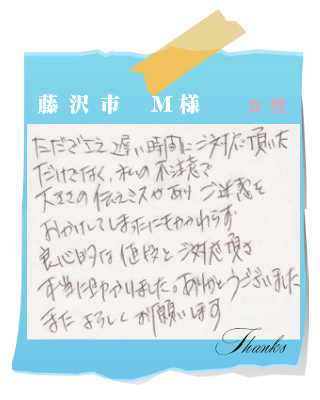 藤沢市 M様 女性
ただでさえ遅い時間にご対応頂いた
だけでなく、私の不注意で
大きさの伝えミスやあり ご迷惑を
おかけしてしまったにもかかわらず
良心的な値段とご対応頂き
本当に助かりました。ありがとうございました
また よろしくお願いします
Thanks